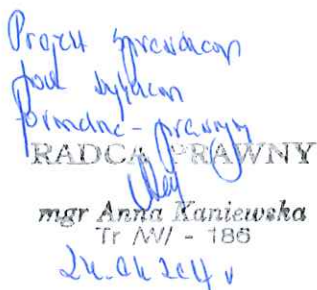 Projekt sprawdzono
pod względem
formalno-prawnym
RADCA PRAWNY
mgr Anna Kaniewska
Tr /W/ - 186